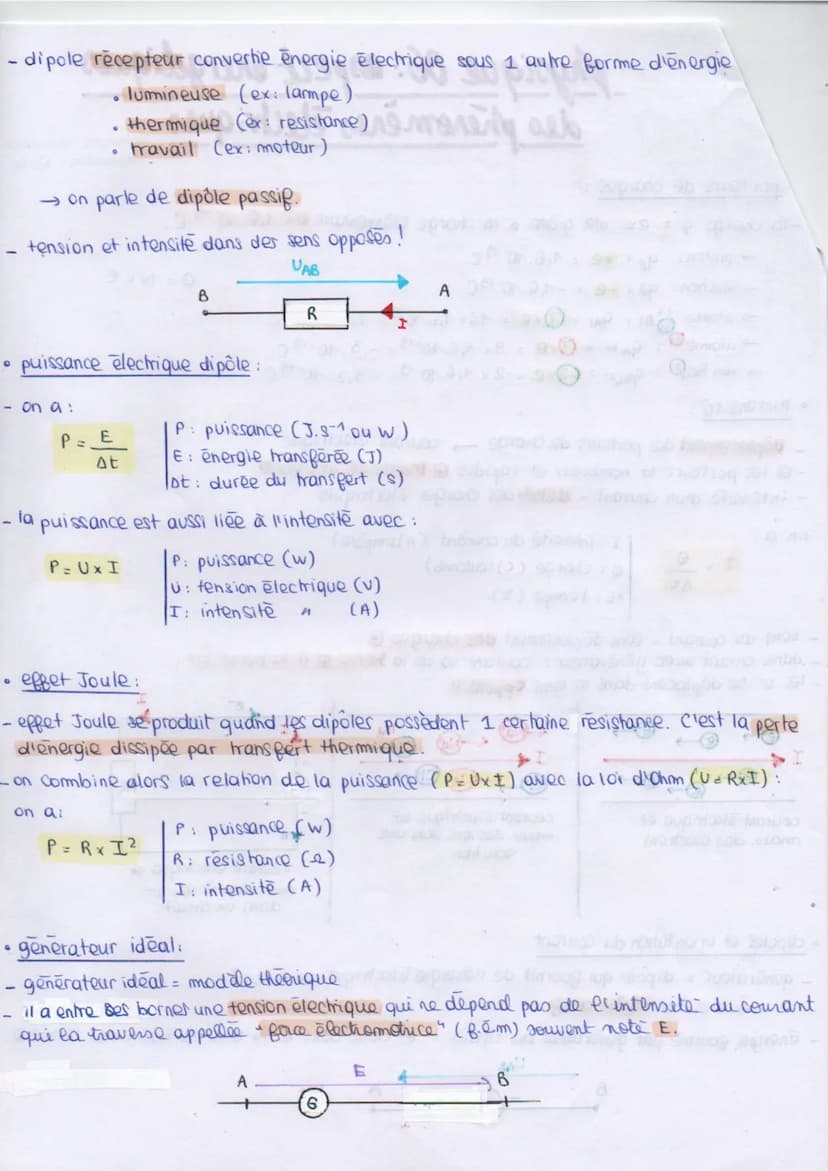 - dipole récepteur convertie énergie électrique sous 1 autre forme d'énergie
• lumineuse (ex: lampe)
• thermique (ex: resistance)
• travail (ex: moteur)
→ on parle de dipôle passif.
- tension et intensité dans des sens opposés !
UAB
B A
R
I
• puissance électrique dipôle :
- on a :
P = E / Δt
P : puissance (J.s⁻¹ ou W)
E : énergie transférée (J)
Δt : durée du transfert (s)
- la puissance est aussi liée à l'intensité avec :
P = U x I
P : puissance (W)
U : tension électrique (V)
I : intensité " (A)
• effet Joule :
- effet Joule se produit quand les dipôles possèdent 1 certaine résistance. C'est la perte
d'énergie dissipée par transfert thermique.
- on combine alors la relation de la puissance (P = U x I) avec la loi d'Ohm (U = R x I) :
on a :
P = R x I²
P : puissance (W)
R : résistance (Ω)
I : intensité (A)
• générateur idéal :
- générateur idéal = modèle théorique
- il a entre ses bornes une tension électrique qui ne dépend pas de l'intensité du courant
qui la traverse appellée "force électromotrice" (f.é.m) souvent noté E.
E
A B
G